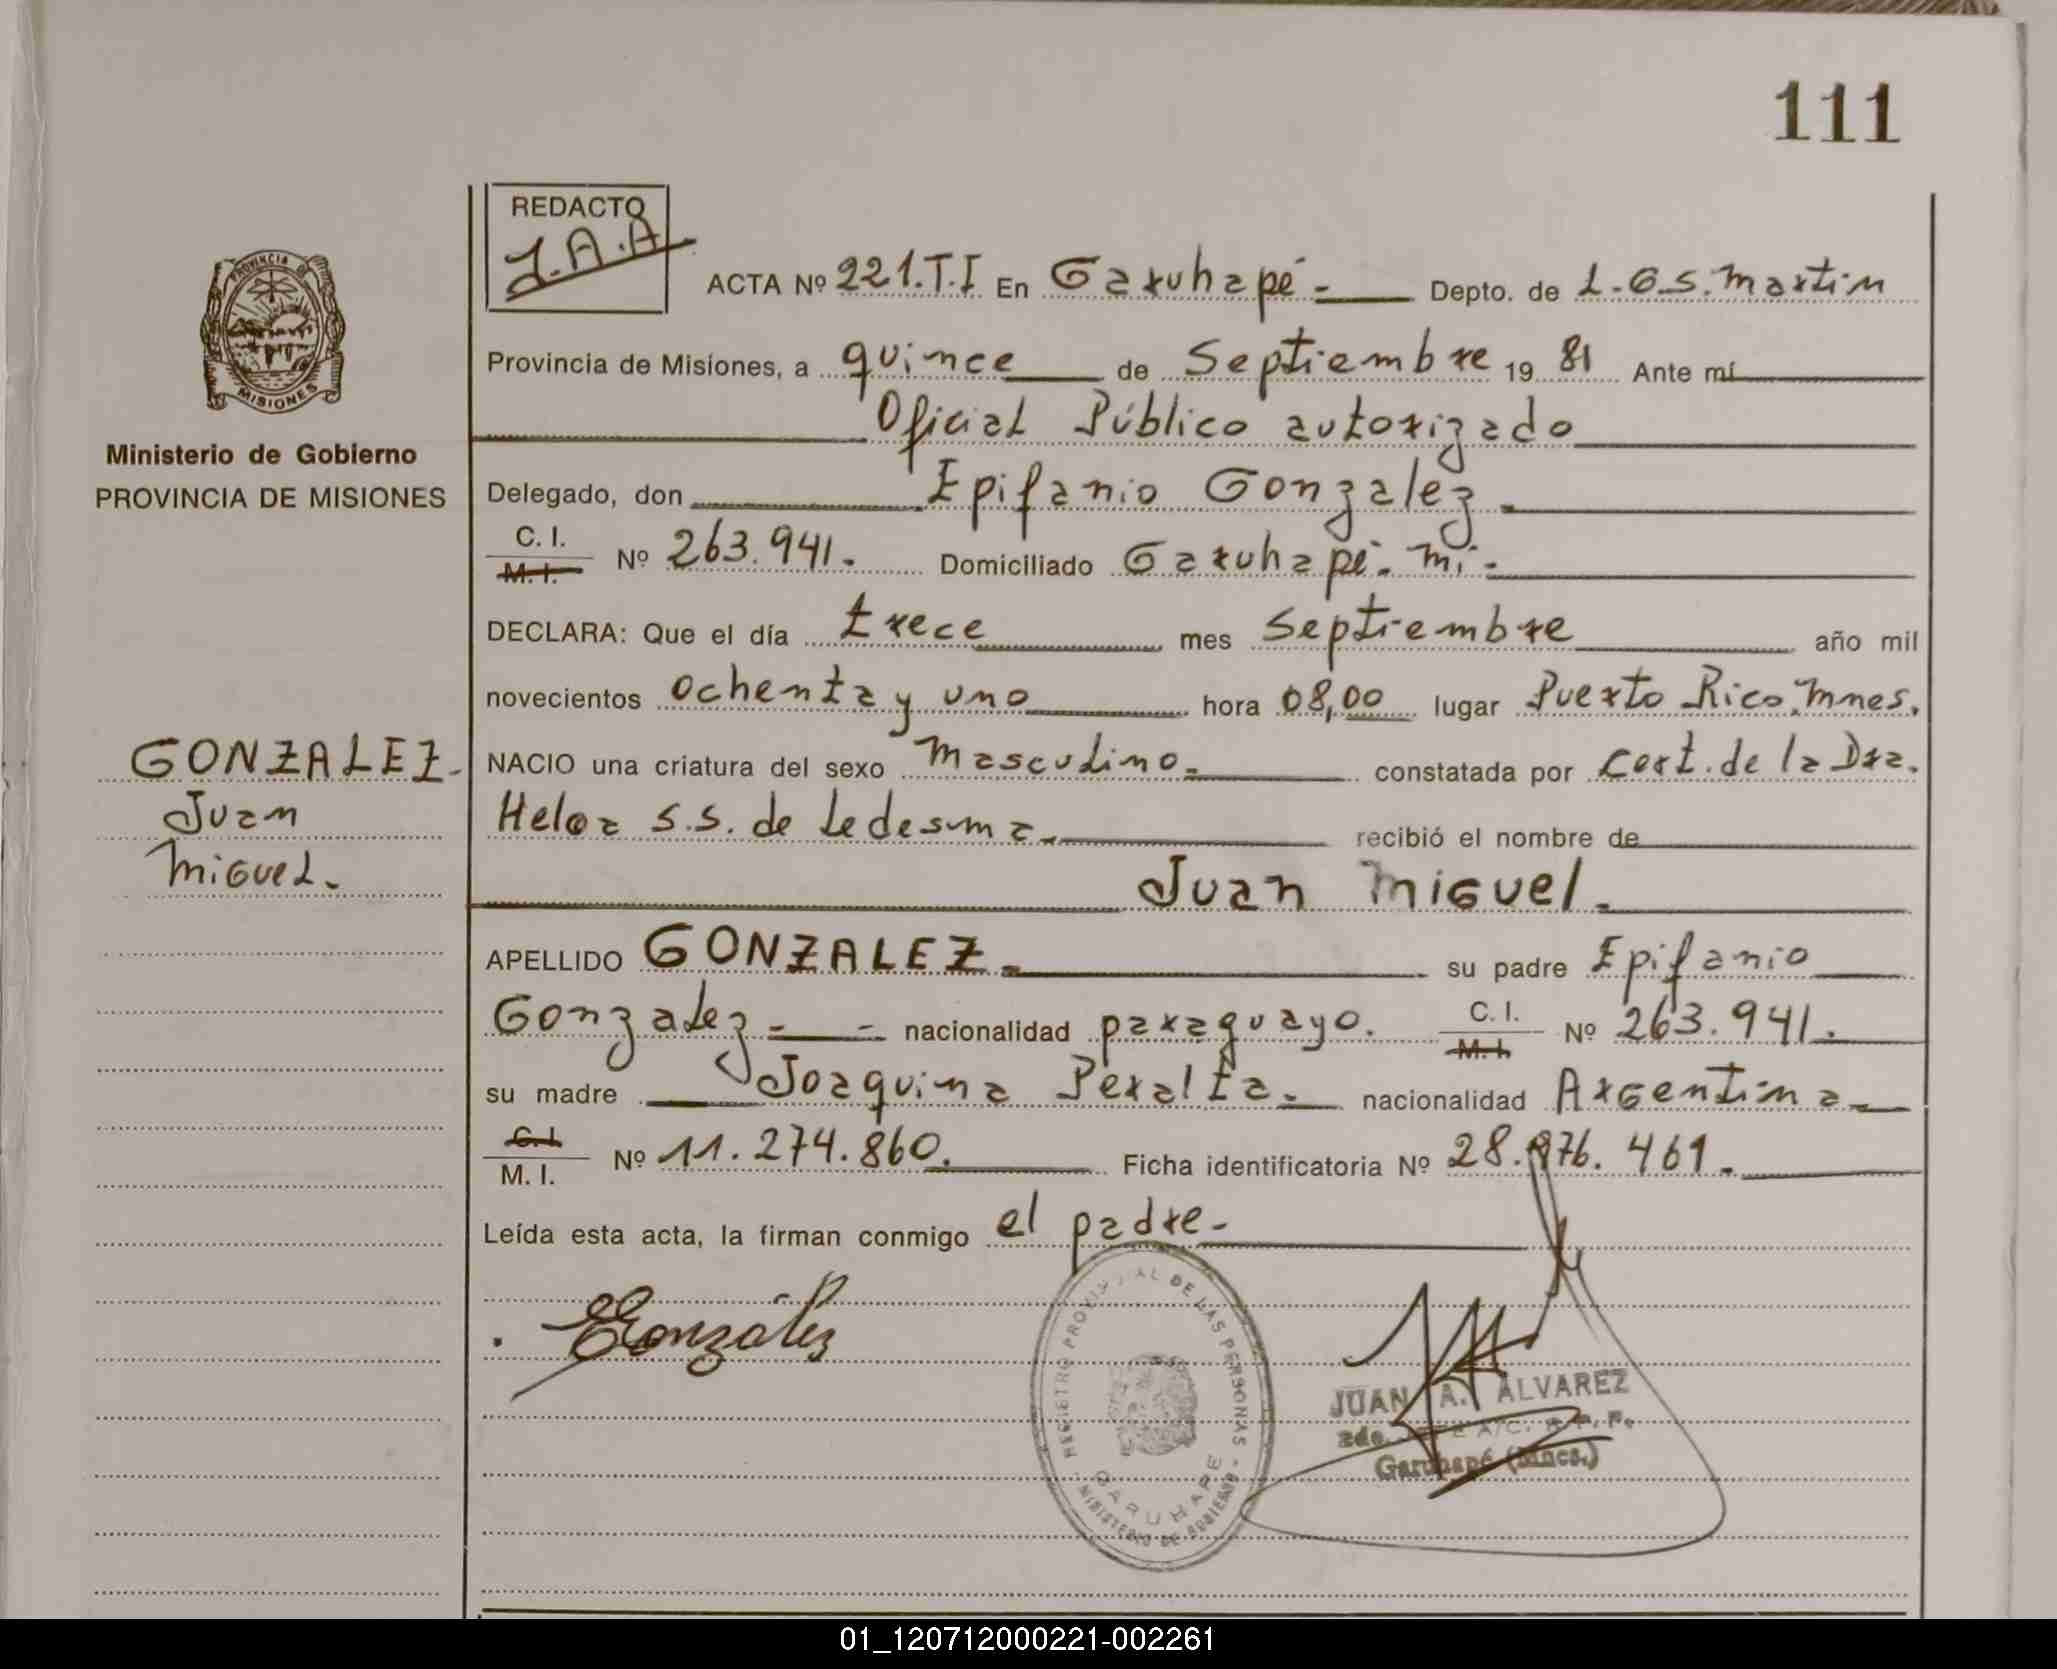 111
REDACTO
J.A.A
ACTA Nº 221.T.I En Garuhapé.- Depto. de L.G.S. Martin
PROVINCIA DE MISIONES
Provincia de Misiones, a quince de Septiembre 19 81 Ante mí
Oficial Público autorizado
Ministerio de Gobierno
PROVINCIA DE MISIONES
Delegado, don Epifanio Gonzalez.
C. I.
M. I. Nº 263.941. Domiciliado Garuhapé. Mi.-
DECLARA: Que el día trece mes Septiembre año mil
novecientos ochenta y uno hora 08,00 lugar Puerto Rico. Mnes.
GONZALEZ.
Juan
Miguel.
NACIO una criatura del sexo Masculino.- constatada por Cert. de la Dra.
S.S. de Ledesma.- recibió el nombre de
Juan Miguel.
APELLIDO GONZALEZ.- su padre Epifanio
Gonzalez.- nacionalidad paraguayo. C. I.
M. I. Nº 263.941.
su madre Joaquina Peralta.- nacionalidad Argentina
C. I.
M. I. Nº 11.274.860. Ficha identificatoria Nº 28.876.461.
Leída esta acta, la firman conmigo el padre-
EGonzález
REGISTRO PROVINCIAL DE LAS PERSONAS
GARUHAPE
MINISTERIO DE GOBIERNO
JUAN A. ALVAREZ
2do. A/C. R.P.P.
Garuhapé (Mnes.)
01_120712000221-002261